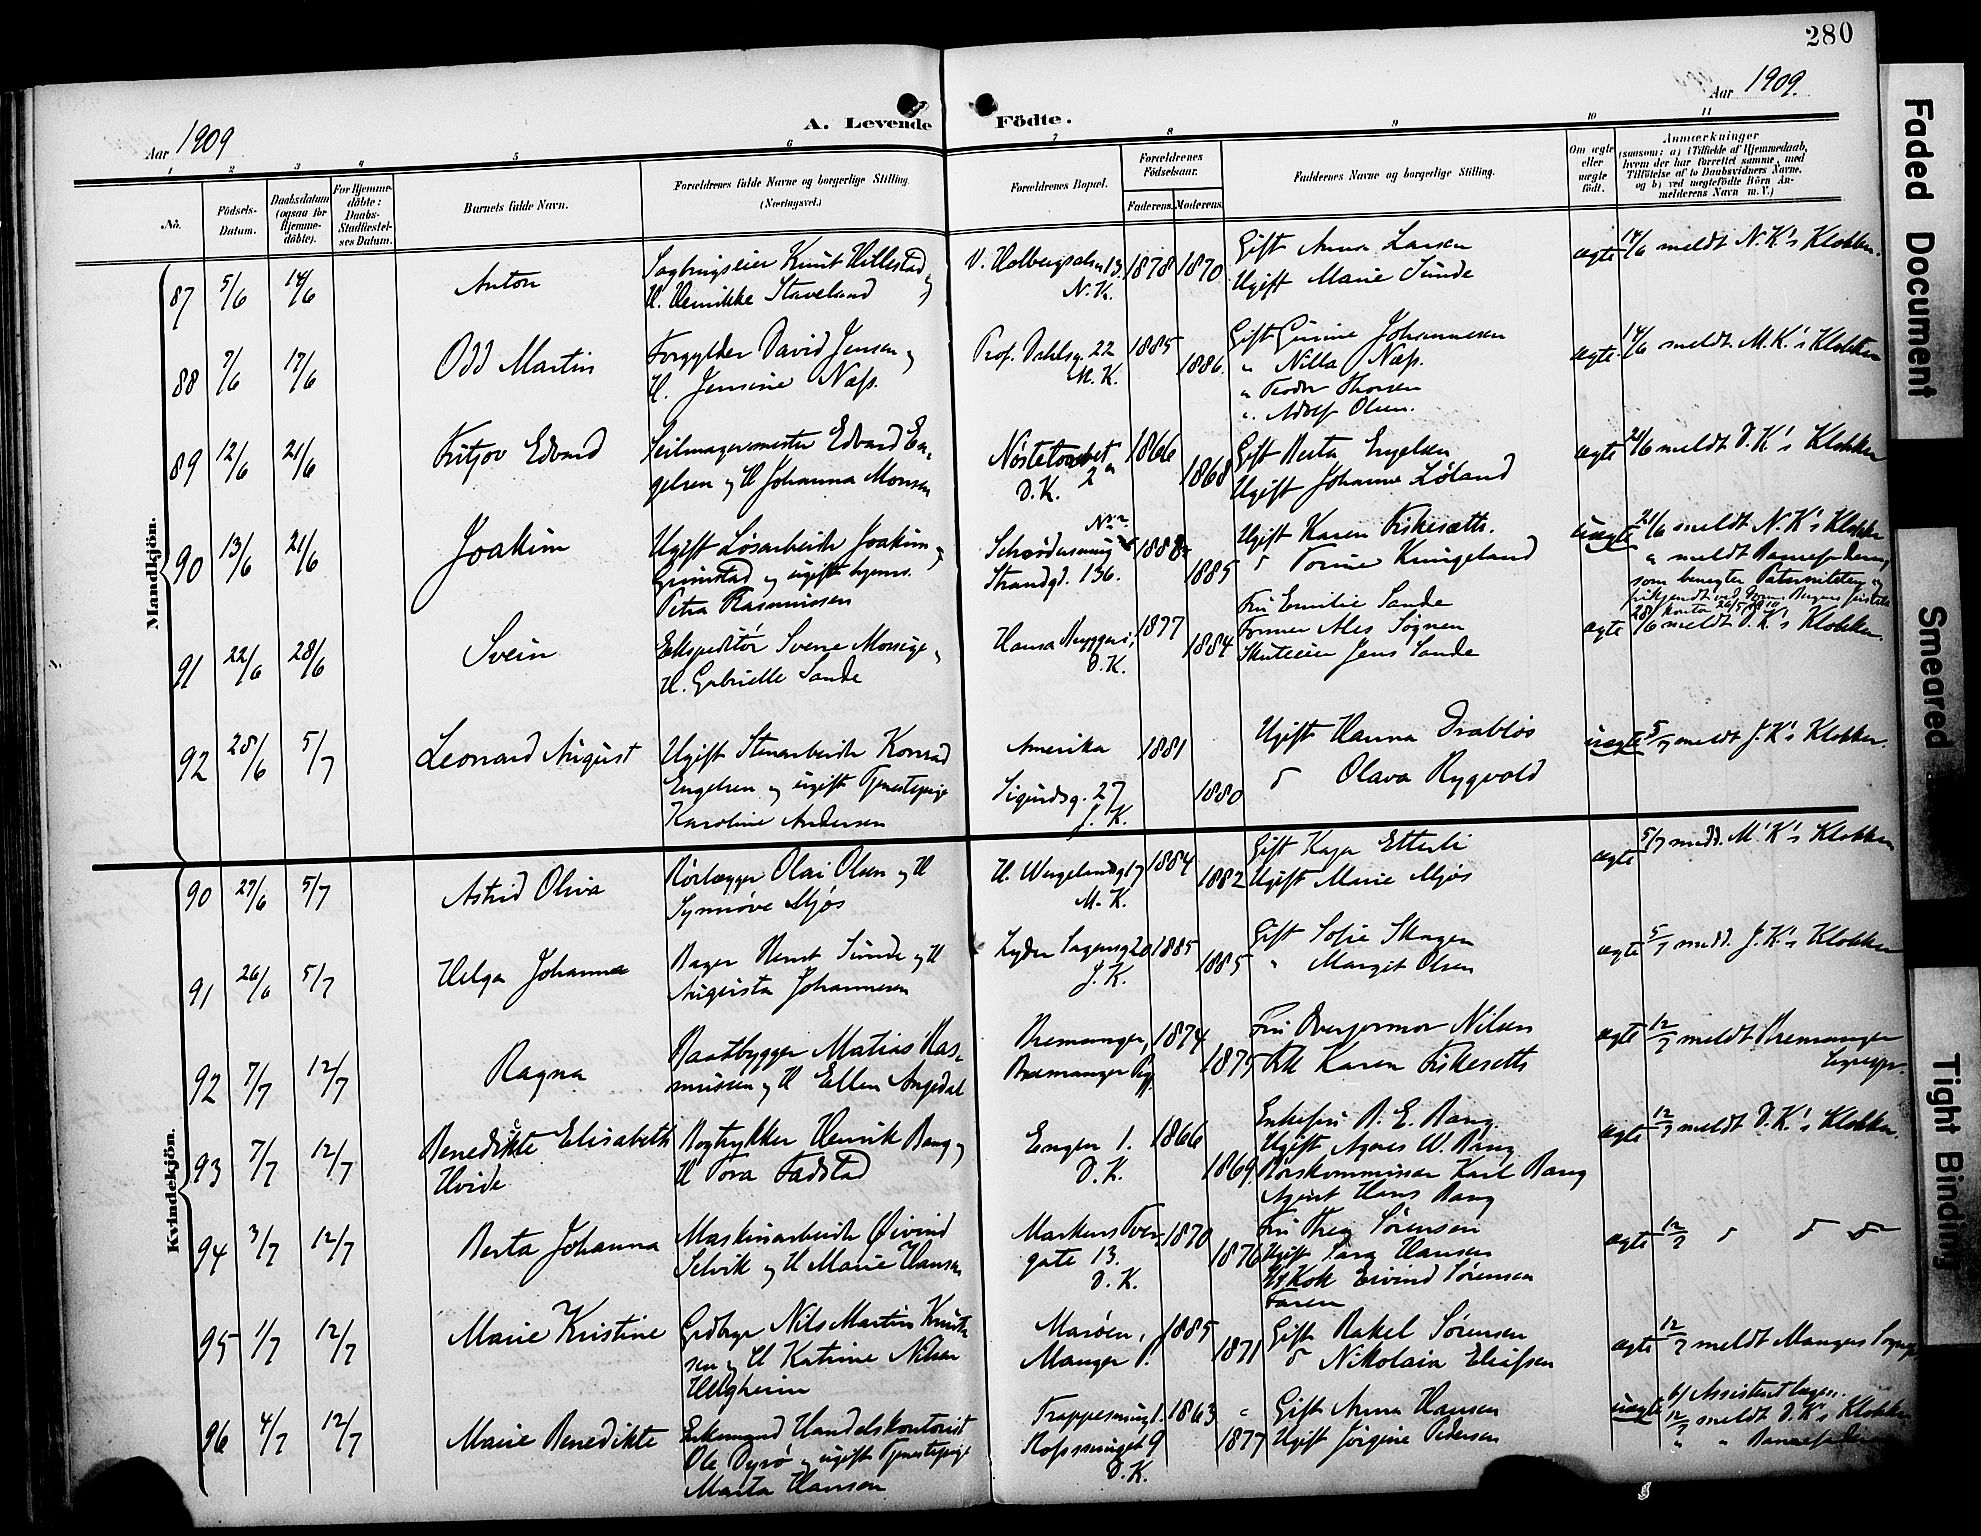 280
Aar 1909
A. Levende Födte.
Aar 1909.
1 2 3 4 5 6 7 8 9 10 11
No.
Födsels-Datum.
Daabsdatum (ogsaa for Hjemme-döbte).
For Hjemme-döbte: Daabs-Stadfæstel-ses Datum.
Barnets fulde Navn.
Forældrenes fulde Navne og borgerlige Stilling.
(Næringsvei.)
Forældrenes Bopæl.
Forældrenes Födselsaar.
Faderens. Moderens.
Faddernes Navne og borgerlige Stilling.
Om ægte eller uægte födt.
Anmærkninger
(saasom: a) i Tilfælde af Hjemmedaab,
hvem der har forrettet samme, med
Tilföielse af to Daabsvidners Navne.
og b) ved uægtefödte Börn An-
melderens Navn m. V.)
Mandkjön.
87 5/6 14/6 Anton
Knut Hillestad
H. Henrikke Staveland
V. Holbergsalm. 13.
N.K.
1878 1870
Gift Anna Larsen
Ugift Marie Sunde
ægte 14/6 meldt N.K's Klokker.
88 7/6 17/6 Odd Martin
Forgylder David Jensen og
H. Jensine Næss.
Prof. Dahlsg. 22
M.K.
1885 1886
Gift Gurine Johannesen
" Nilla Næss.
" Thorsen
" Adolf Olsen.
ægte 17/6 meldt M.K.'s Klokker
89 12/6 21/6 Fritjov Edvard
Seilmagermester Edvard En-
gelsen og H Johanna Monsen
Nöstetorvet
2 a
D.K.
1866 1868
Gift Berta Engelsen
Ugift Johanna Löland
ægte 21/6 meldt D.K.'s Klokker
90 13/6 21/6 Joakim
Ugift Løsarbeider Joakim
Grimstad og ugift
Petra Rasmussen
Strandgd. 136.
1888 1885
Ugift Karen Fiskesætt.
Torine Kringeland
uægte 21/6 meldt N.K's Klokker
" meldt Barnefaderen,
som benegter Paterniteten
91 22/6 28/6 Svein
Ekspeditör Sverre Monsige
H. Gabrielle Sande
Hansa Bryggeri,
D.K.
1877 1884
Fru Emilie Sande
Former Als Sognen
Skuteeier Jens Sande
ægte 28/6 meldt D.K.'s Klokker.
92 28/6 5/7 Leonard August
Ugift Stenarbeider Konrad
Engelsen og ugift Tjenestepige
Karoline Andersen
Amerika
Sigurdsg. 27
J.K.
1881 1880
Ugift Hanna Drabløs
Olava Rygvold
uægte 5/7 meldt J.K's Klokker.
Kvindekjön.
90 27/6 5/7 Astrid Oliva
Rörlægger Olai Olsen og H
Synnöve Mjös
H. Wergelandsgt 7
M.K.
1884 1882
Gift Kaja Etterli
Ugift Marie Mjös
ægte 5/7 meldt. M.K's Klokker
91 26/6 5/7 Helga Johanna
Bager Bernt Sunde og H
Augusta Johannesen
Lyder Sagensg 20
J.K.
1885 1885
Gift Sofie Skagen
" Margit Olsen
ægte 5/7 meldt. J.K.'s Klokker
92 7/7 12/7 Ragna
Baatbygger Matias Ras-
mussen og H Ellen Angedal
Bremanger,
Bremanger Pgj.
1874 1875
Fru Nilsen
Frk Karen Fiskesætts
ægte 12/7 meldt Bremanger
Sognepr.
93 7/7 12/7 Benedikte Elisabeth
Hvide
Bogtrykker Henrik Bang og
H Tora Fadstad
Engen 1.
D.K.
1866 1869
Enkefru B. E. Bang.
Ugift Agnes W. Bang
Börskommissær Karl Bang
Agent Hans Bang
ægte 12/7 meldt D.K.'s Klokker.
94 3/7 12/7 Berta Johanna
Maskinarbeider Øivind
Selvik og H Marie Hansen
Markens Tver-
gate 13.
D.K.
1870 1876
Fru Sörensen
Ugift Sara Hansen
Kok Eivind Sörensen
Faren
ægte 12/7
95 1/7 12/7 Marie Kristine
Grdbrgr Nils Martin Knut-
sen og H Katrine Nilsen
Helgheim
Maröen,
Manger P.
1885 1871
Gift Rakel Sörensen
Nikolaia Eliassen
ægte 12/7 meldt Mangers Sognepr
96 4/7 12/7 Marie Benedikte
Enkemand Handelskontorist
Ole Dyrö og ugift Tjenestepige
Marta Hansen
Trappesmug 1.
9
D.K.
1863 1877
Gift Anna Hansen
Ugift Jörgine Pedersen
uægte Assistent
12/7 meldt D.K's Klokker
" " Barnefaderen
Faded Document
Smeared
Tight Binding